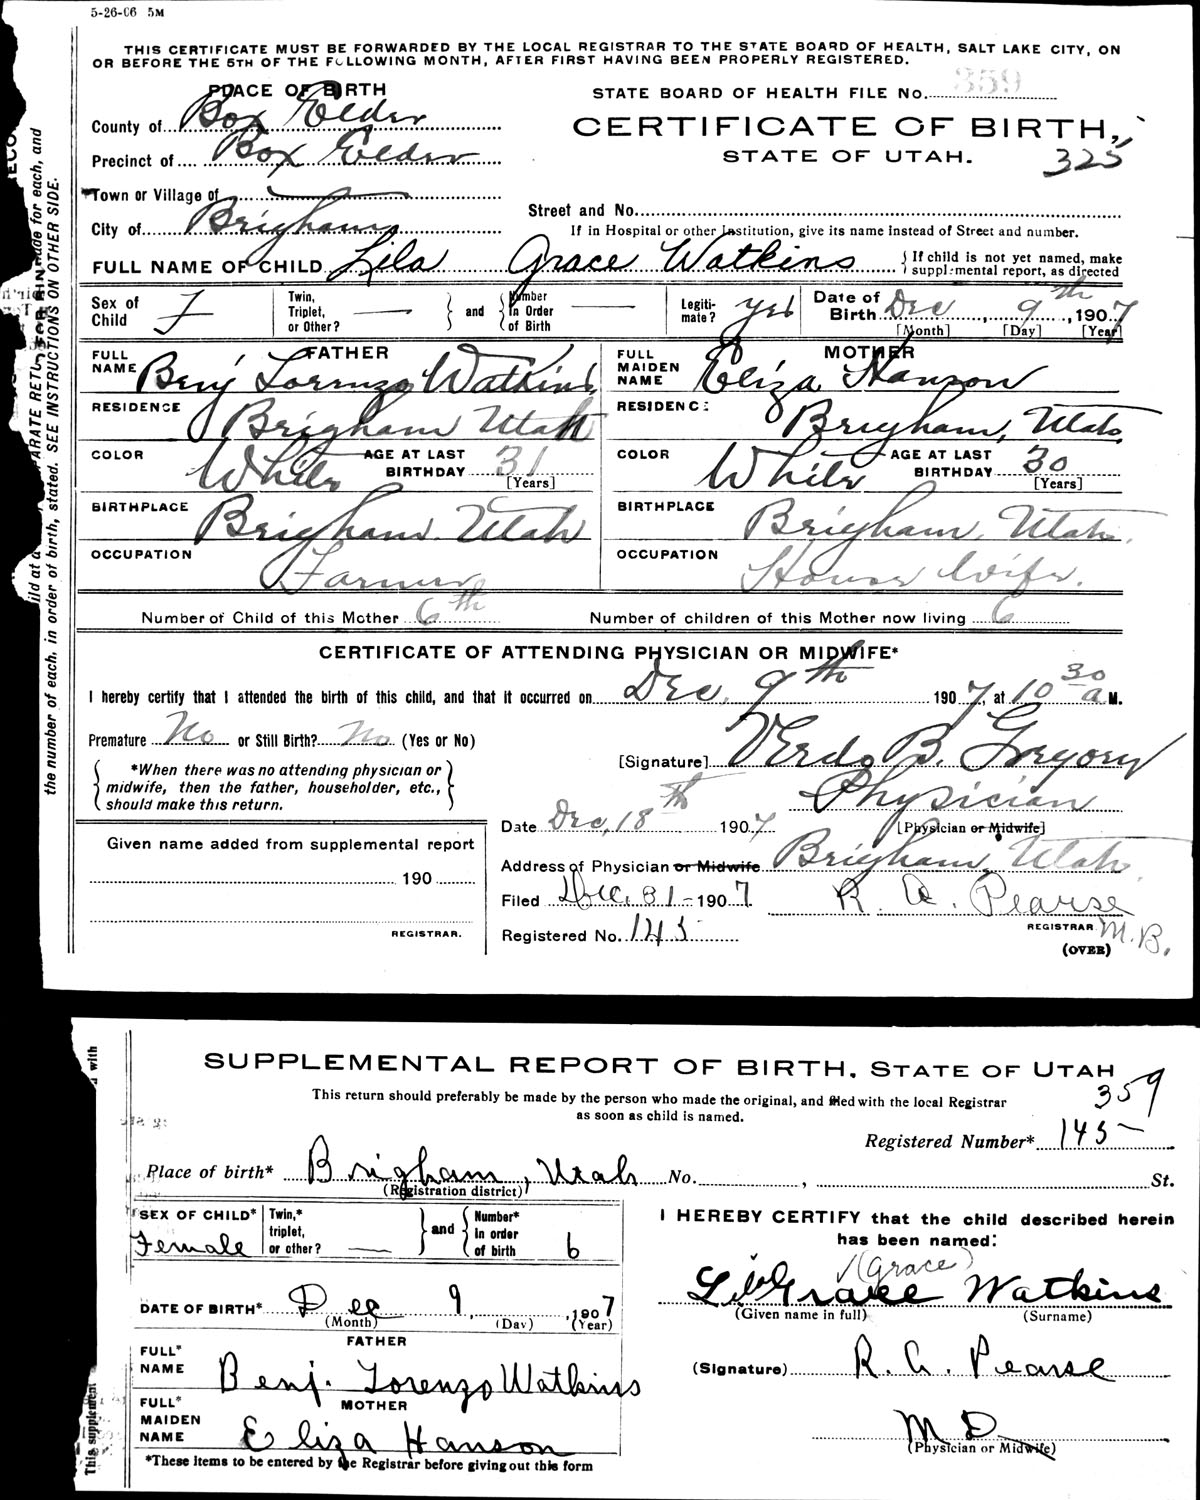 5-26-06 5M
THIS CERTIFICATE MUST BE FORWARDED BY THE LOCAL REGISTRAR TO THE STATE BOARD OF HEALTH, SALT LAKE CITY, ON
OR BEFORE THE 5TH OF THE FOLLOWING MONTH, AFTER FIRST HAVING BEEN PROPERLY REGISTERED.
PLACE OF BIRTH
STATE BOARD OF HEALTH FILE No. 359
County of Box Elder
CERTIFICATE OF BIRTH,
Precinct of Box Elder
STATE OF UTAH.
325
Town or Village of
Street and No.
City of Brigham
If in Hospital or other Institution, give its name instead of Street and number.
FULL NAME OF CHILD Lila Grace Watkins
If child is not yet named, make
supplemental report, as directed
Sex of Child F
Twin, Triplet, or Other? and Number In Order of Birth
Legitimate? yes
Date of Birth Dec 9th, 1907
[Month] [Day] [Year]
FATHER
FULL NAME Benj Lorenzo Watkins
MOTHER
FULL MAIDEN NAME Eliza Hanson
RESIDENCE Brigham Utah
RESIDENCE Brigham, Utah
COLOR White AGE AT LAST BIRTHDAY 31 [Years]
COLOR White AGE AT LAST BIRTHDAY 30 [Years]
BIRTHPLACE Brigham Utah
BIRTHPLACE Brigham, Utah.
OCCUPATION Farmer
OCCUPATION House Wife.
Number of Child of this Mother 6th
Number of children of this Mother now living 6
CERTIFICATE OF ATTENDING PHYSICIAN OR MIDWIFE*
I hereby certify that I attended the birth of this child, and that it occurred on Dec. 9th 1907, at 10 30 a M.
Premature No or Still Birth? No (Yes or No)
[Signature] Verdo B. Gregory
*When there was no attending physician or
midwife, then the father, householder, etc.,
should make this return.
Physician
[Physician or Midwife]
Date Dec, 18th 1907
Address of Physician or Midwife Brigham, Utah
Given name added from supplemental report
190
REGISTRAR.
Filed Dec. 31-1907
R. A. Pearse
REGISTRAR M.B.
Registered No. 145
(OVER)
the number of each, in order of birth, stated. SEE INSTRUCTIONS ON OTHER SIDE.
SUPPLEMENTAL REPORT OF BIRTH, STATE OF UTAH
359
This return should preferably be made by the person who made the original, and filed with the local Registrar
as soon as child is named.
Registered Number* 145
Place of birth* Brigham, Utah No. , St.
(Registration district)
SEX OF CHILD* Female
Twin,* triplet, or other? and Number* In order of birth 6
I HEREBY CERTIFY that the child described herein
has been named:
(Grace)
Lila Grace Watkins
(Given name in full) (Surname)
DATE OF BIRTH* Dec 9, 1907
(Month) (Day) (Year)
FATHER
FULL* NAME Benj. Lorenzo Watkins
(Signature) R. A. Pearse
MOTHER
FULL* MAIDEN NAME Eliza Hanson
M D
(Physician or Midwife)
*These items to be entered by the Registrar before giving out this form
This supplement
d with